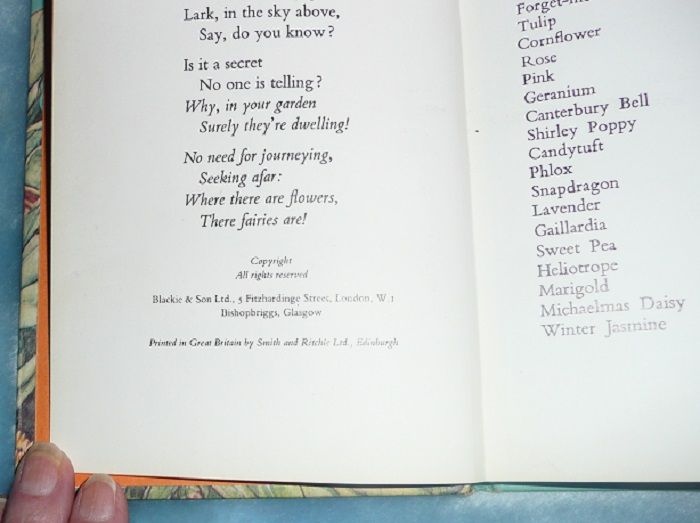 Lark, in the sky above,
Say, do you know?
Is it a secret
No one is telling?
Why, in your garden
Surely they're dwelling!
No need for journeying,
Seeking afar:
Where there are flowers,
There fairies are!
Copyright
All rights reserved
Blackie & Son Ltd., 5 Fitzhardinge Street, London, W.1
Bishopbriggs, Glasgow
Printed in Great Britain by Smith and Ritchie Ltd., Edinburgh
Tulip
Cornflower
Rose
Pink
Geranium
Canterbury Bell
Shirley Poppy
Candytuft
Phlox
Snapdragon
Lavender
Gaillardia
Sweet Pea
Heliotrope
Marigold
Michaelmas Daisy
Winter Jasmine